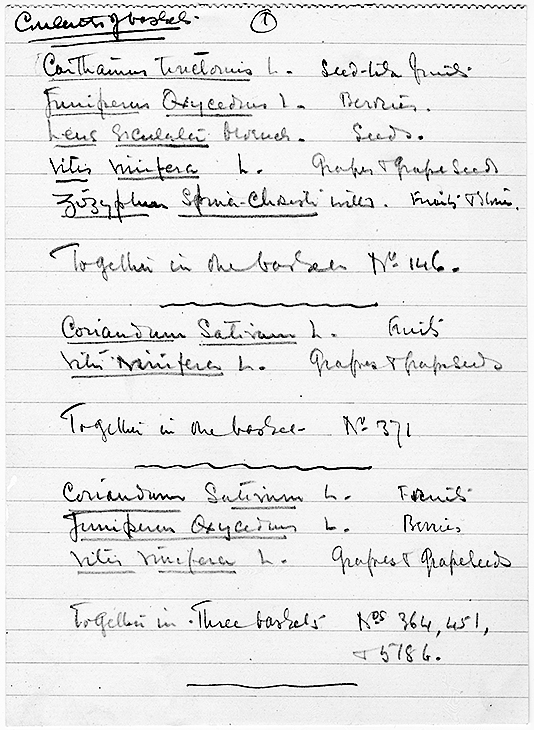 Contents of baskets. 1
Carthamus tinctorius L. Seed-like fruits
Juniperus Oxycedrus L. Berries.
Lens esculenta Moench. Seeds.
Vitis vinifera L. Grapes & Grape Seeds
Zizyphus Spina-Christi Willd. Fruits &
Together in one basket No 146.
Coriandrum Sativum L. Fruits
Vitis Vinifera L. Grapes & grapeseeds
Together in one basket No 371
Coriandrum Sativum L. Fruits
Juniperus Oxycedrus L. Berries
Vitis Vinifera L. Grapes & Grapeseeds
Together in Three baskets Nos 364, 451,
& 518 6.